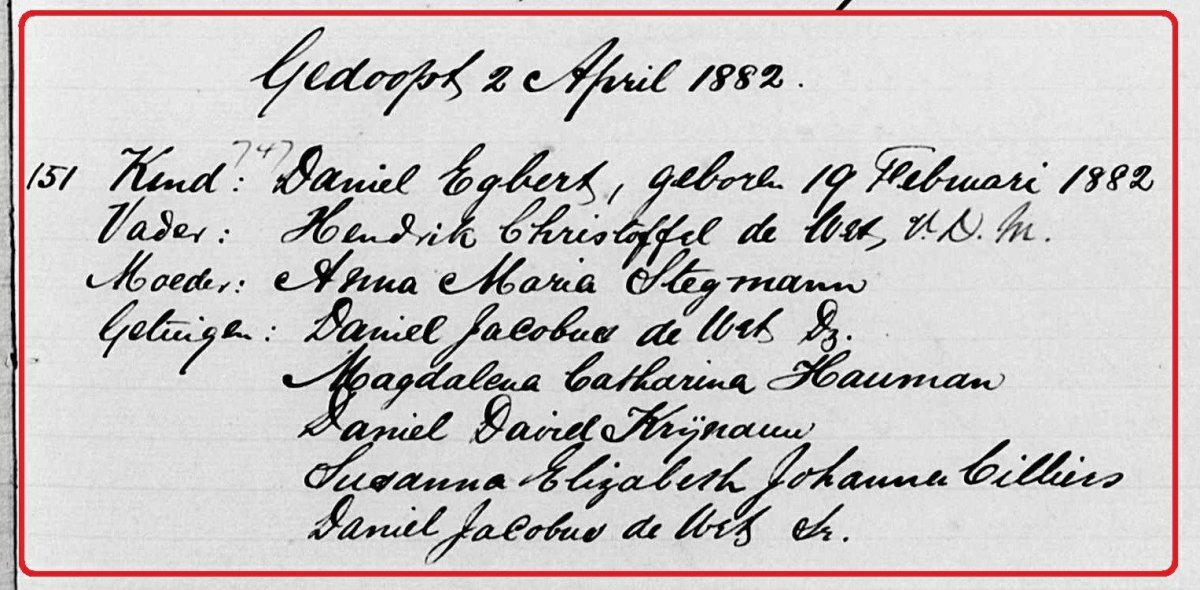 Gedoopt 2 April 1882.
747
151 Kind: Daniel Egbert, geboren 19 Februari 1882
Vader: Hendrik Christoffel de Wet, V. D. M.
Moeder: Anna Maria Stegmann
Getuigen: Daniel Jacobus de Wet Dz.
Magdalena Catharina Hauman
Daniel David Krÿnauw
Susanna Elizabeth Johanna Cilliers
Daniel Jacobus de Wet Sr.